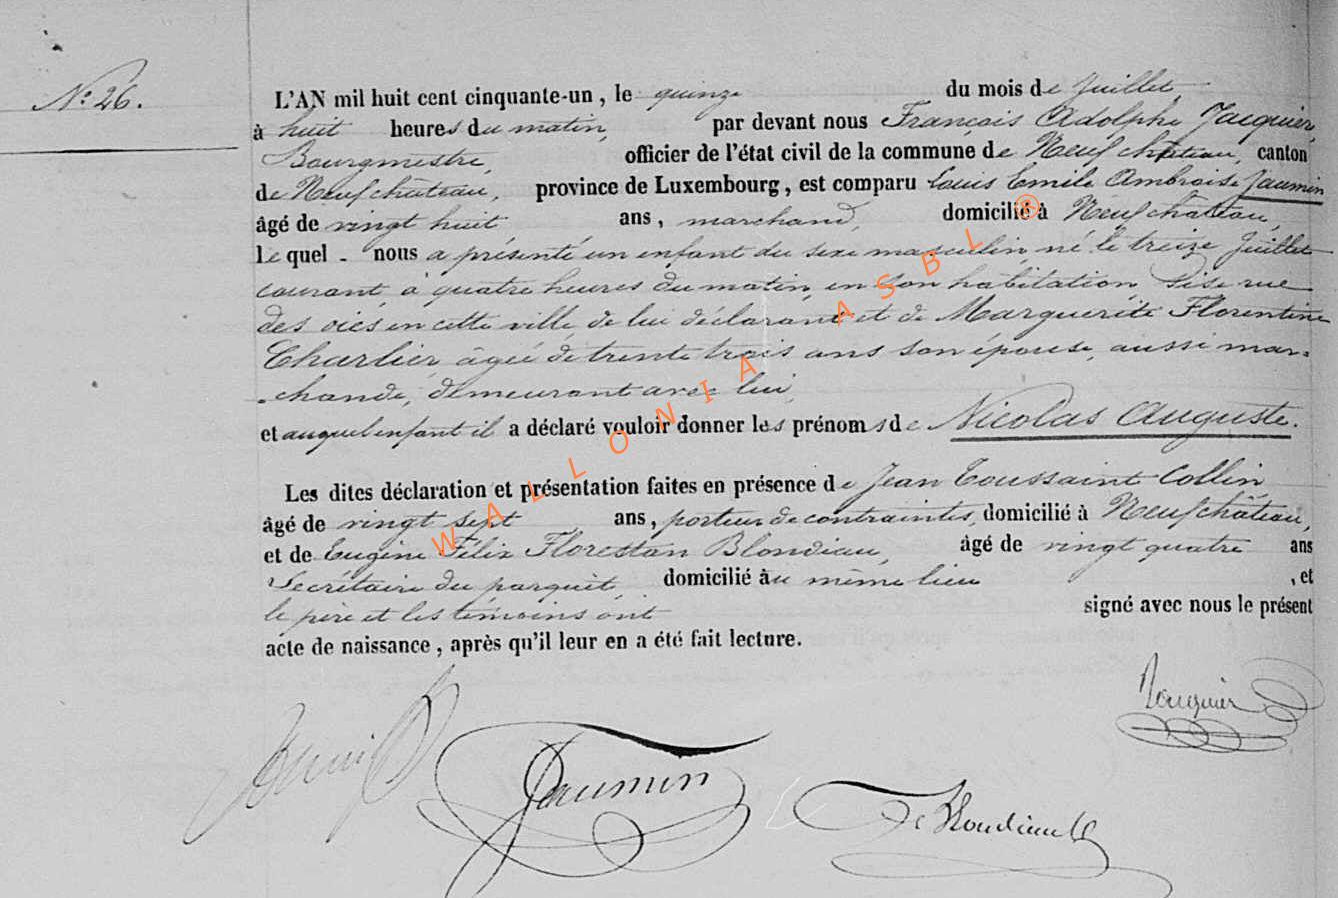 N° 26.
L'AN mil huit cent cinquante-un, le quinze du mois de Juillet
à huit heures du matin, par devant nous François Adolphe Jacquier,
Bourgmestre, officier de l'état civil de la commune de Neufchâteau, canton
de Neufchâteau, province de Luxembourg, est comparu Louis Emile Ambroise Jaumin
âgé de vingt huit ans, marchand, domicilié à Neufchâteau,
lequel - nous a présenté un enfant du sexe masculin, né le treize Juillet
courant, à quatre heures du matin, en son habitation, sise rue
des oies en cette ville de lui déclarant et de Marguerite Florentine
Charlier, âgée de trente trois ans son épouse, aussi mar-
-chande, demeurant avec lui,
et auquel enfant il a déclaré vouloir donner les prénoms de Nicolas Auguste.
Les dites déclaration et présentation faites en présence de Jean Toussaint Collin
âgé de vingt sept ans, porteur de contraintes, domicilié à Neufchâteau,
et de Eugène Félix Florestan Blondiau, âgé de vingt quatre ans
Secrétaire du parquet, domicilié au même lieu , et
le père et les témoins ont signé avec nous le présent
acte de naissance, après qu'il leur en a été fait lecture.
Jacquier
Jaumin
WALLONIA ASBL ®